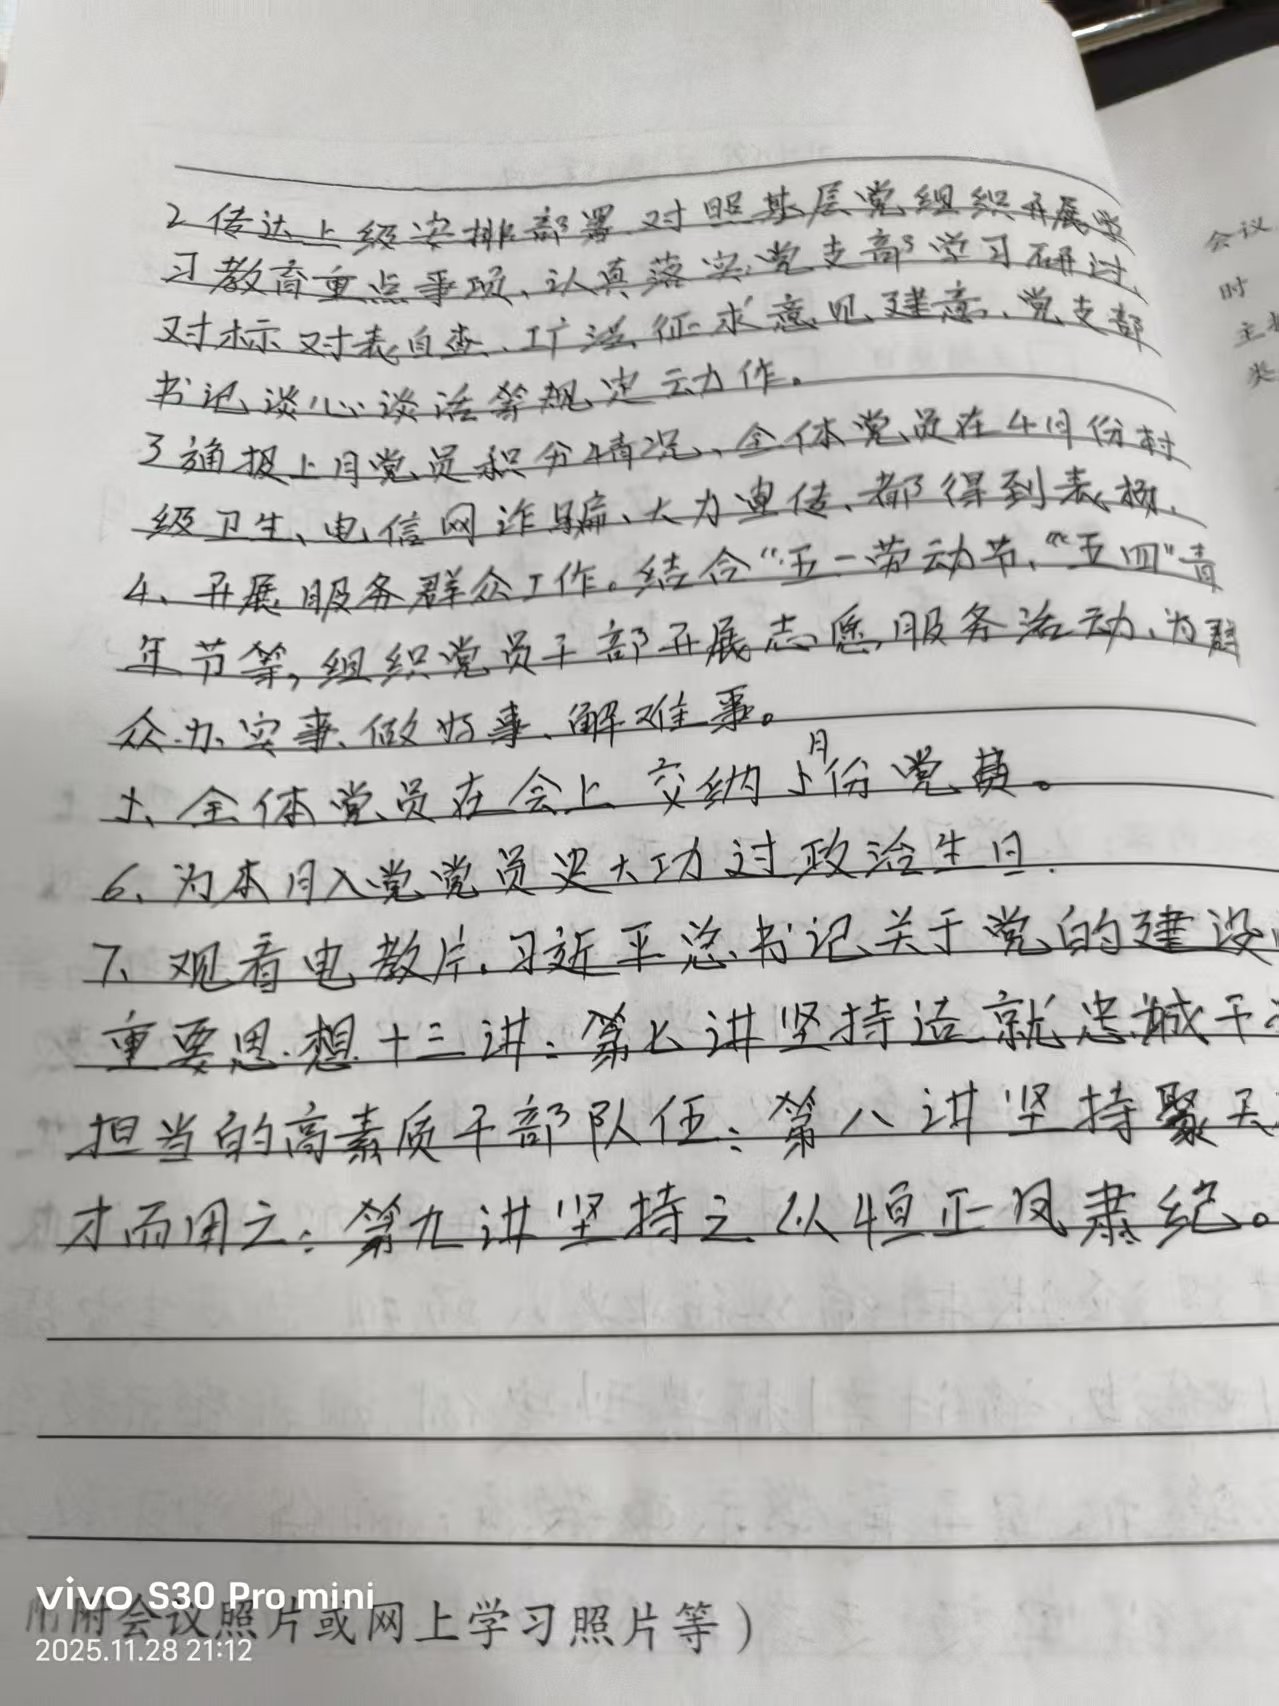 2 传达上级安排部署对照基层党组织开展学
习教育重点事项、认真落实党支部学习研讨、
对标对表自查、广泛征求意见建意、党支部
书记谈心谈话等规定动作。
3 通报上月党员积分情况、全体党员在4月份村
级卫生、电信网诈骗、大力宣传、都得到表扬、
4、开展服务群众工作。结合“五一劳动节、“五四”青
年节等,组织党员干部开展志愿服务活动、为群
众办实事、做好事、解难事。
5、全体党员在会上交纳上月份党费。
6、为本月入党党员过政治生日.
7、观看电教片.习近平总书记关于党的建设
重要思想十三讲:第七讲坚持造就忠诚干
担当的高素质干部队伍:第八讲坚持聚天
才而用之:第九讲坚持之以恒正风肃纪。
附会议照片或网上学习照片等)
会议
时
主
类
vivo S30 Pro mini
2025.11.28 21:12